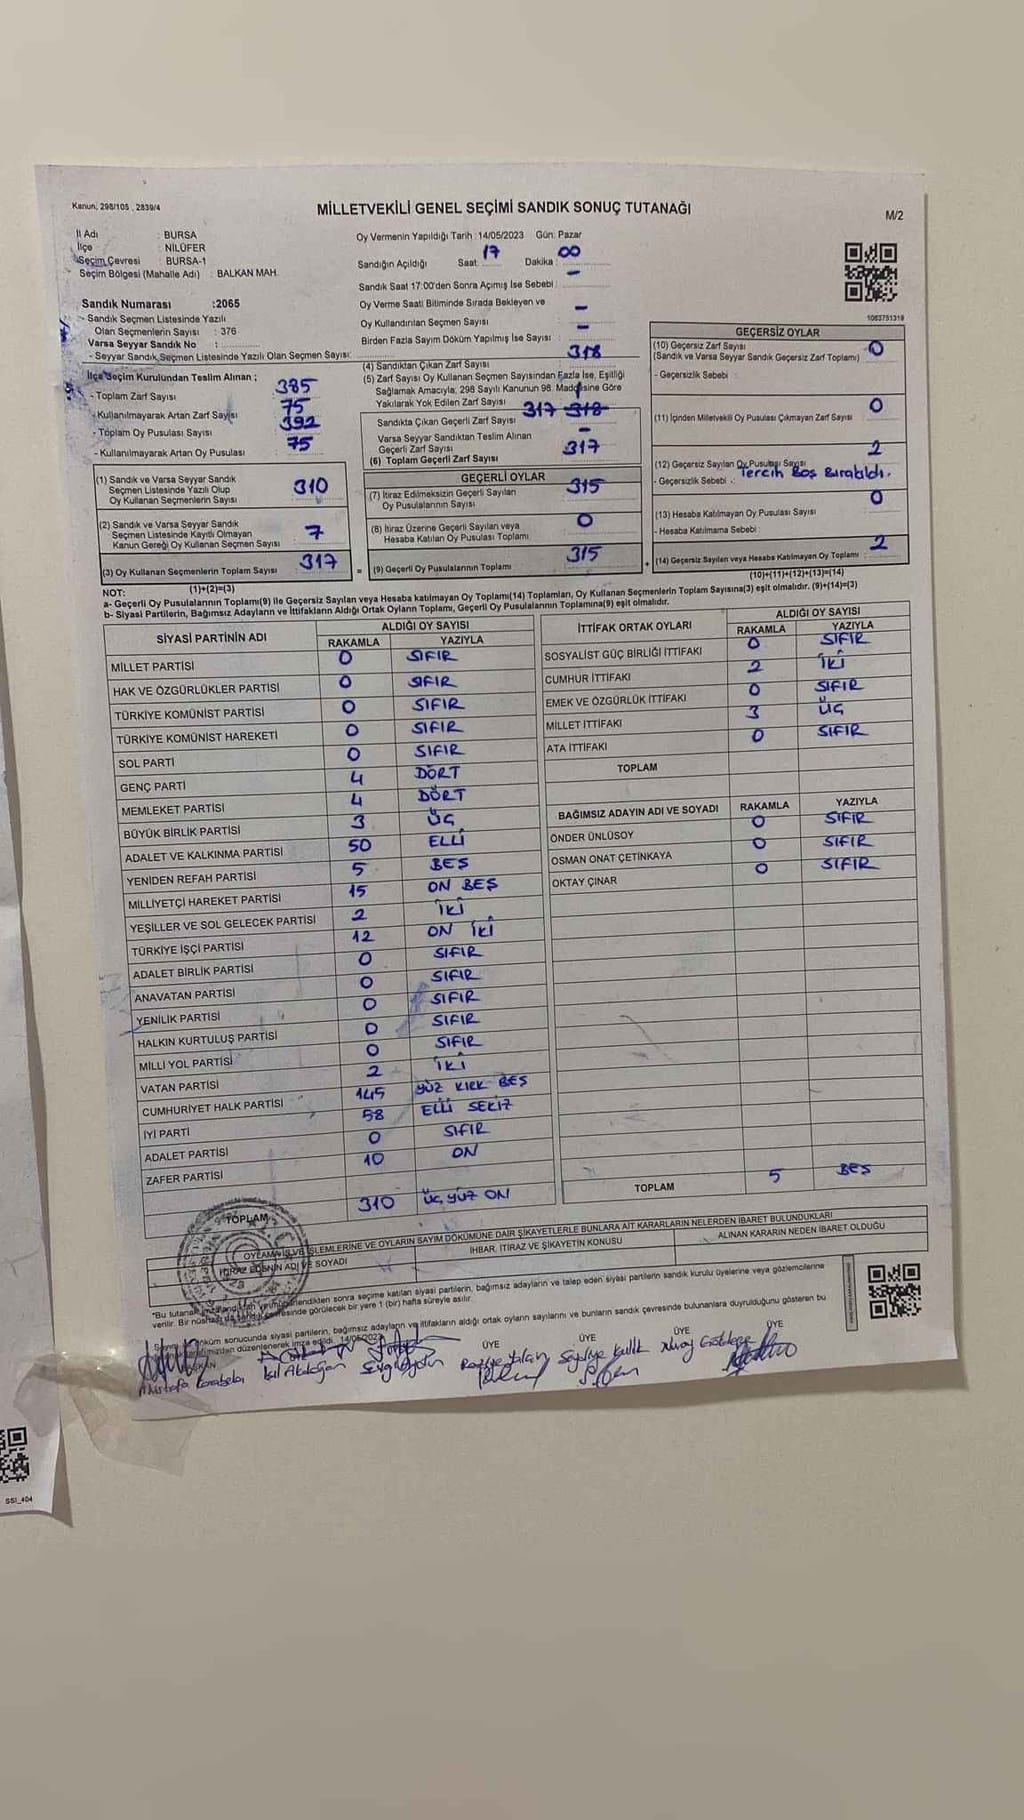 Kanun, 298/105 , 2839/4
MİLLETVEKİLİ GENEL SEÇİMİ SANDIK SONUÇ TUTANAĞI
M/2
İl Adı : BURSA
İlçe : NİLÜFER
Seçim Çevresi : BURSA-1
Seçim Bölgesi (Mahalle Adı) : BALKAN MAH.
Oy Vermenin Yapıldığı Tarih : 14/05/2023 Gün: Pazar
Sandığın Açıldığı Saat 17 Dakika : 00
Sandık Saat 17:00'den Sonra Açımış İse Sebebi : -
Oy Verme Saati Bitiminde Sırada Bekleyen ve
Oy Kullandırılan Seçmen Sayısı -
Birden Fazla Sayım Döküm Yapılmış İse Sayısı : -
1083751319
Sandık Numarası : 2065
- Sandık Seçmen Listesinde Yazılı
Olan Seçmenlerin Sayısı : 376
Varsa Seyyar Sandık No :
- Seyyar Sandık Seçmen Listesinde Yazılı Olan Seçmen Sayısı:
İlçe Seçim Kurulundan Teslim Alınan ;
- Toplam Zarf Sayısı 385
- Kullanılmayarak Artan Zarf Sayısı 75
- Toplam Oy Pusulası Sayısı 392
- Kullanılmayarak Artan Oy Pusulası 75
(1) Sandık ve Varsa Seyyar Sandık
Seçmen Listesinde Yazılı Olup
Oy Kullanan Seçmenlerin Sayısı 310
(2) Sandık ve Varsa Seyyar Sandık
Seçmen Listesinde Kayıtlı Olmayan
Kanun Gereği Oy Kullanan Seçmen Sayısı 7
(3) Oy Kullanan Seçmenlerin Toplam Sayısı 317
(1)+(2)=(3)
(4) Sandıktan Çıkan Zarf Sayısı 318
(5) Zarf Sayısı Oy Kullanan Seçmen Sayısından Fazla İse, Eşitliği
Sağlamak Amacıyla, 298 Sayılı Kanunun 98. Maddesine Göre
Yakılarak Yok Edilen Zarf Sayısı 1
Sandıkta Çıkan Geçerli Zarf Sayısı 317 318
Varsa Seyyar Sandıktan Teslim Alınan
Geçerli Zarf Sayısı -
(6) Toplam Geçerli Zarf Sayısı 317
GEÇERLİ OYLAR
(7) İtiraz Edilmeksizin Geçerli Sayılan
Oy Pusulalarının Sayısı 315
(8) İtiraz Üzerine Geçerli Sayılan veya
Hesaba Katılan Oy Pusulası Toplamı 0
= (9) Geçerli Oy Pusulalarının Toplamı 315
GEÇERSİZ OYLAR
(10) Geçersiz Zarf Sayısı 0
(Sandık ve Varsa Seyyar Sandık Geçersiz Zarf Toplamı)
- Geçersizlik Sebebi :
(11) İçinden Milletvekili Oy Pusulası Çıkmayan Zarf Sayısı 0
(12) Geçersiz Sayılan Oy Pusulası Sayısı 2
- Geçersizlik Sebebi : Tercih Boş Bırakıldı.
(13) Hesaba Katılmayan Oy Pusulası Sayısı 0
- Hesaba Katılmama Sebebi :
+ (14) Geçersiz Sayılan veya Hesaba Katılmayan Oy Toplamı 2
(10)+(11)+(12)+(13)=(14)
NOT:
a- Geçerli Oy Pusulalarının Toplamı(9) ile Geçersiz Sayılan veya Hesaba katılmayan Oy Toplamı(14) Toplamları, Oy Kullanan Seçmenlerin Toplam Sayısına(3) eşit olmalıdır. (9)+(14)=(3)
b- Siyasi Partilerin, Bağımsız Adayların ve İttifakların Aldığı Ortak Oyların Toplamı, Geçerli Oy Pusulalarının Toplamına(9) eşit olmalıdır.
SİYASİ PARTİNİN ADI ALDIĞI OY SAYISI
RAKAMLA YAZIYLA
MİLLET PARTİSİ 0 SIFIR
HAK VE ÖZGÜRLÜKLER PARTİSİ 0 SIFIR
TÜRKİYE KOMÜNİST PARTİSİ 0 SIFIR
TÜRKİYE KOMÜNİST HAREKETİ 0 SIFIR
SOL PARTİ 0 SIFIR
GENÇ PARTİ 4 DÖRT
MEMLEKET PARTİSİ 4 DÖRT
BÜYÜK BİRLİK PARTİSİ 3 ÜÇ
ADALET VE KALKINMA PARTİSİ 50 ELLİ
YENİDEN REFAH PARTİSİ 5 BEŞ
MİLLİYETÇİ HAREKET PARTİSİ 15 ON BEŞ
YEŞİLLER VE SOL GELECEK PARTİSİ 2 İKİ
TÜRKİYE İŞÇİ PARTİSİ 12 ON İKİ
ADALET BİRLİK PARTİSİ 0 SIFIR
ANAVATAN PARTİSİ 0 SIFIR
YENİLİK PARTİSİ 0 SIFIR
HALKIN KURTULUŞ PARTİSİ 0 SIFIR
MİLLİ YOL PARTİSİ 0 SIFIR
VATAN PARTİSİ 2 İKİ
CUMHURİYET HALK PARTİSİ 145 YÜZ KIRK BEŞ
İYİ PARTİ 58 ELLİ SEKİZ
ADALET PARTİSİ 0 SIFIR
ZAFER PARTİSİ 10 ON
TOPLAM 310 ÜÇ YÜZ ON
İTTİFAK ORTAK OYLARI ALDIĞI OY SAYISI
RAKAMLA YAZIYLA
SOSYALİST GÜÇ BİRLİĞİ İTTİFAKI 0 SIFIR
CUMHUR İTTİFAKI 2 İKİ
EMEK VE ÖZGÜRLÜK İTTİFAKI 0 SIFIR
MİLLET İTTİFAKI 3 ÜÇ
ATA İTTİFAKI 0 SIFIR
TOPLAM
BAĞIMSIZ ADAYIN ADI VE SOYADI RAKAMLA YAZIYLA
ÖNDER ÜNLÜSOY 0 SIFIR
OSMAN ONAT ÇETİNKAYA 0 SIFIR
OKTAY ÇINAR 0 SIFIR
TOPLAM 5 BEŞ
OYLAMA İŞ VE İŞLEMLERİNE VE OYLARIN SAYIM DÖKÜMÜNE DAİR ŞİKAYETLERLE BUNLARA AİT KARARLARIN NELERDEN İBARET BULUNDUKLARI
İTİRAZ EDENİN ADI VE SOYADI İHBAR, İTİRAZ VE ŞİKAYETİN KONUSU ALINAN KARARIN NEDEN İBARET OLDUĞU
"Bu tutanak imzalandıktan ve mühürlendikten sonra seçime katılan siyasi partilerin, bağımsız adayların ve talep eden siyasi partilerin sandık kurulu üyelerine veya gözlemcilerine
verilir. Bir nüshası da sandık çevresinde görülecek bir yere 1 (bir) hafta süreyle asılır.
döküm sonucunda siyasi partilerin, bağımsız adayların ve ittifakların aldığı ortak oyların sayılarını ve bunların sandık çevresinde bulunanlara duyrulduğunu gösteren bu
tarafımızdan düzenlenerek imza edildi. 14/05/2023
BAŞKAN ÜYE ÜYE ÜYE ÜYE
Mustafa
SSI_404